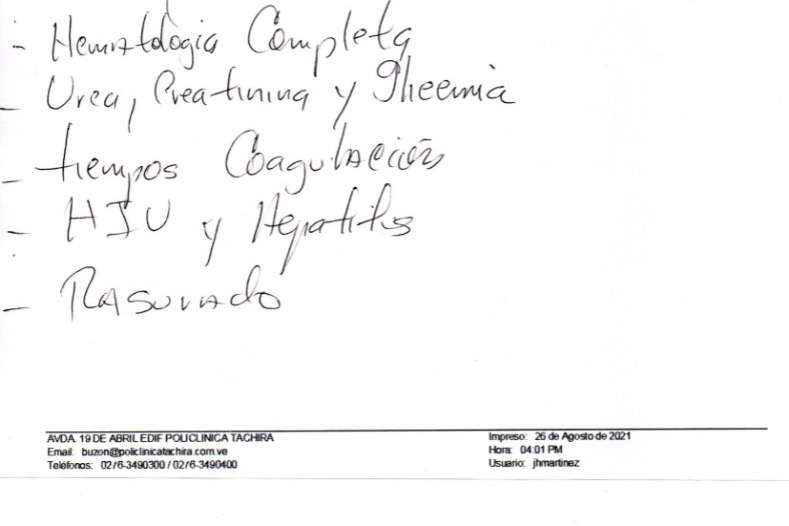 - Hematologia Completa
- Urea, Creatinina y Glicemia
- tiempos Coagulación
- HIV y Hepatitis
- Rasurado
AVDA. 19 DE ABRIL EDIF POLICLINICA TACHIRA
Email: buzon@policlinicatachira.com.ve
Teléfonos: 0276-3490300 / 0276-3490400
Impreso: 26 de Agosto de 2021
Hora: 04:01 PM
Usuario: jhmartinez